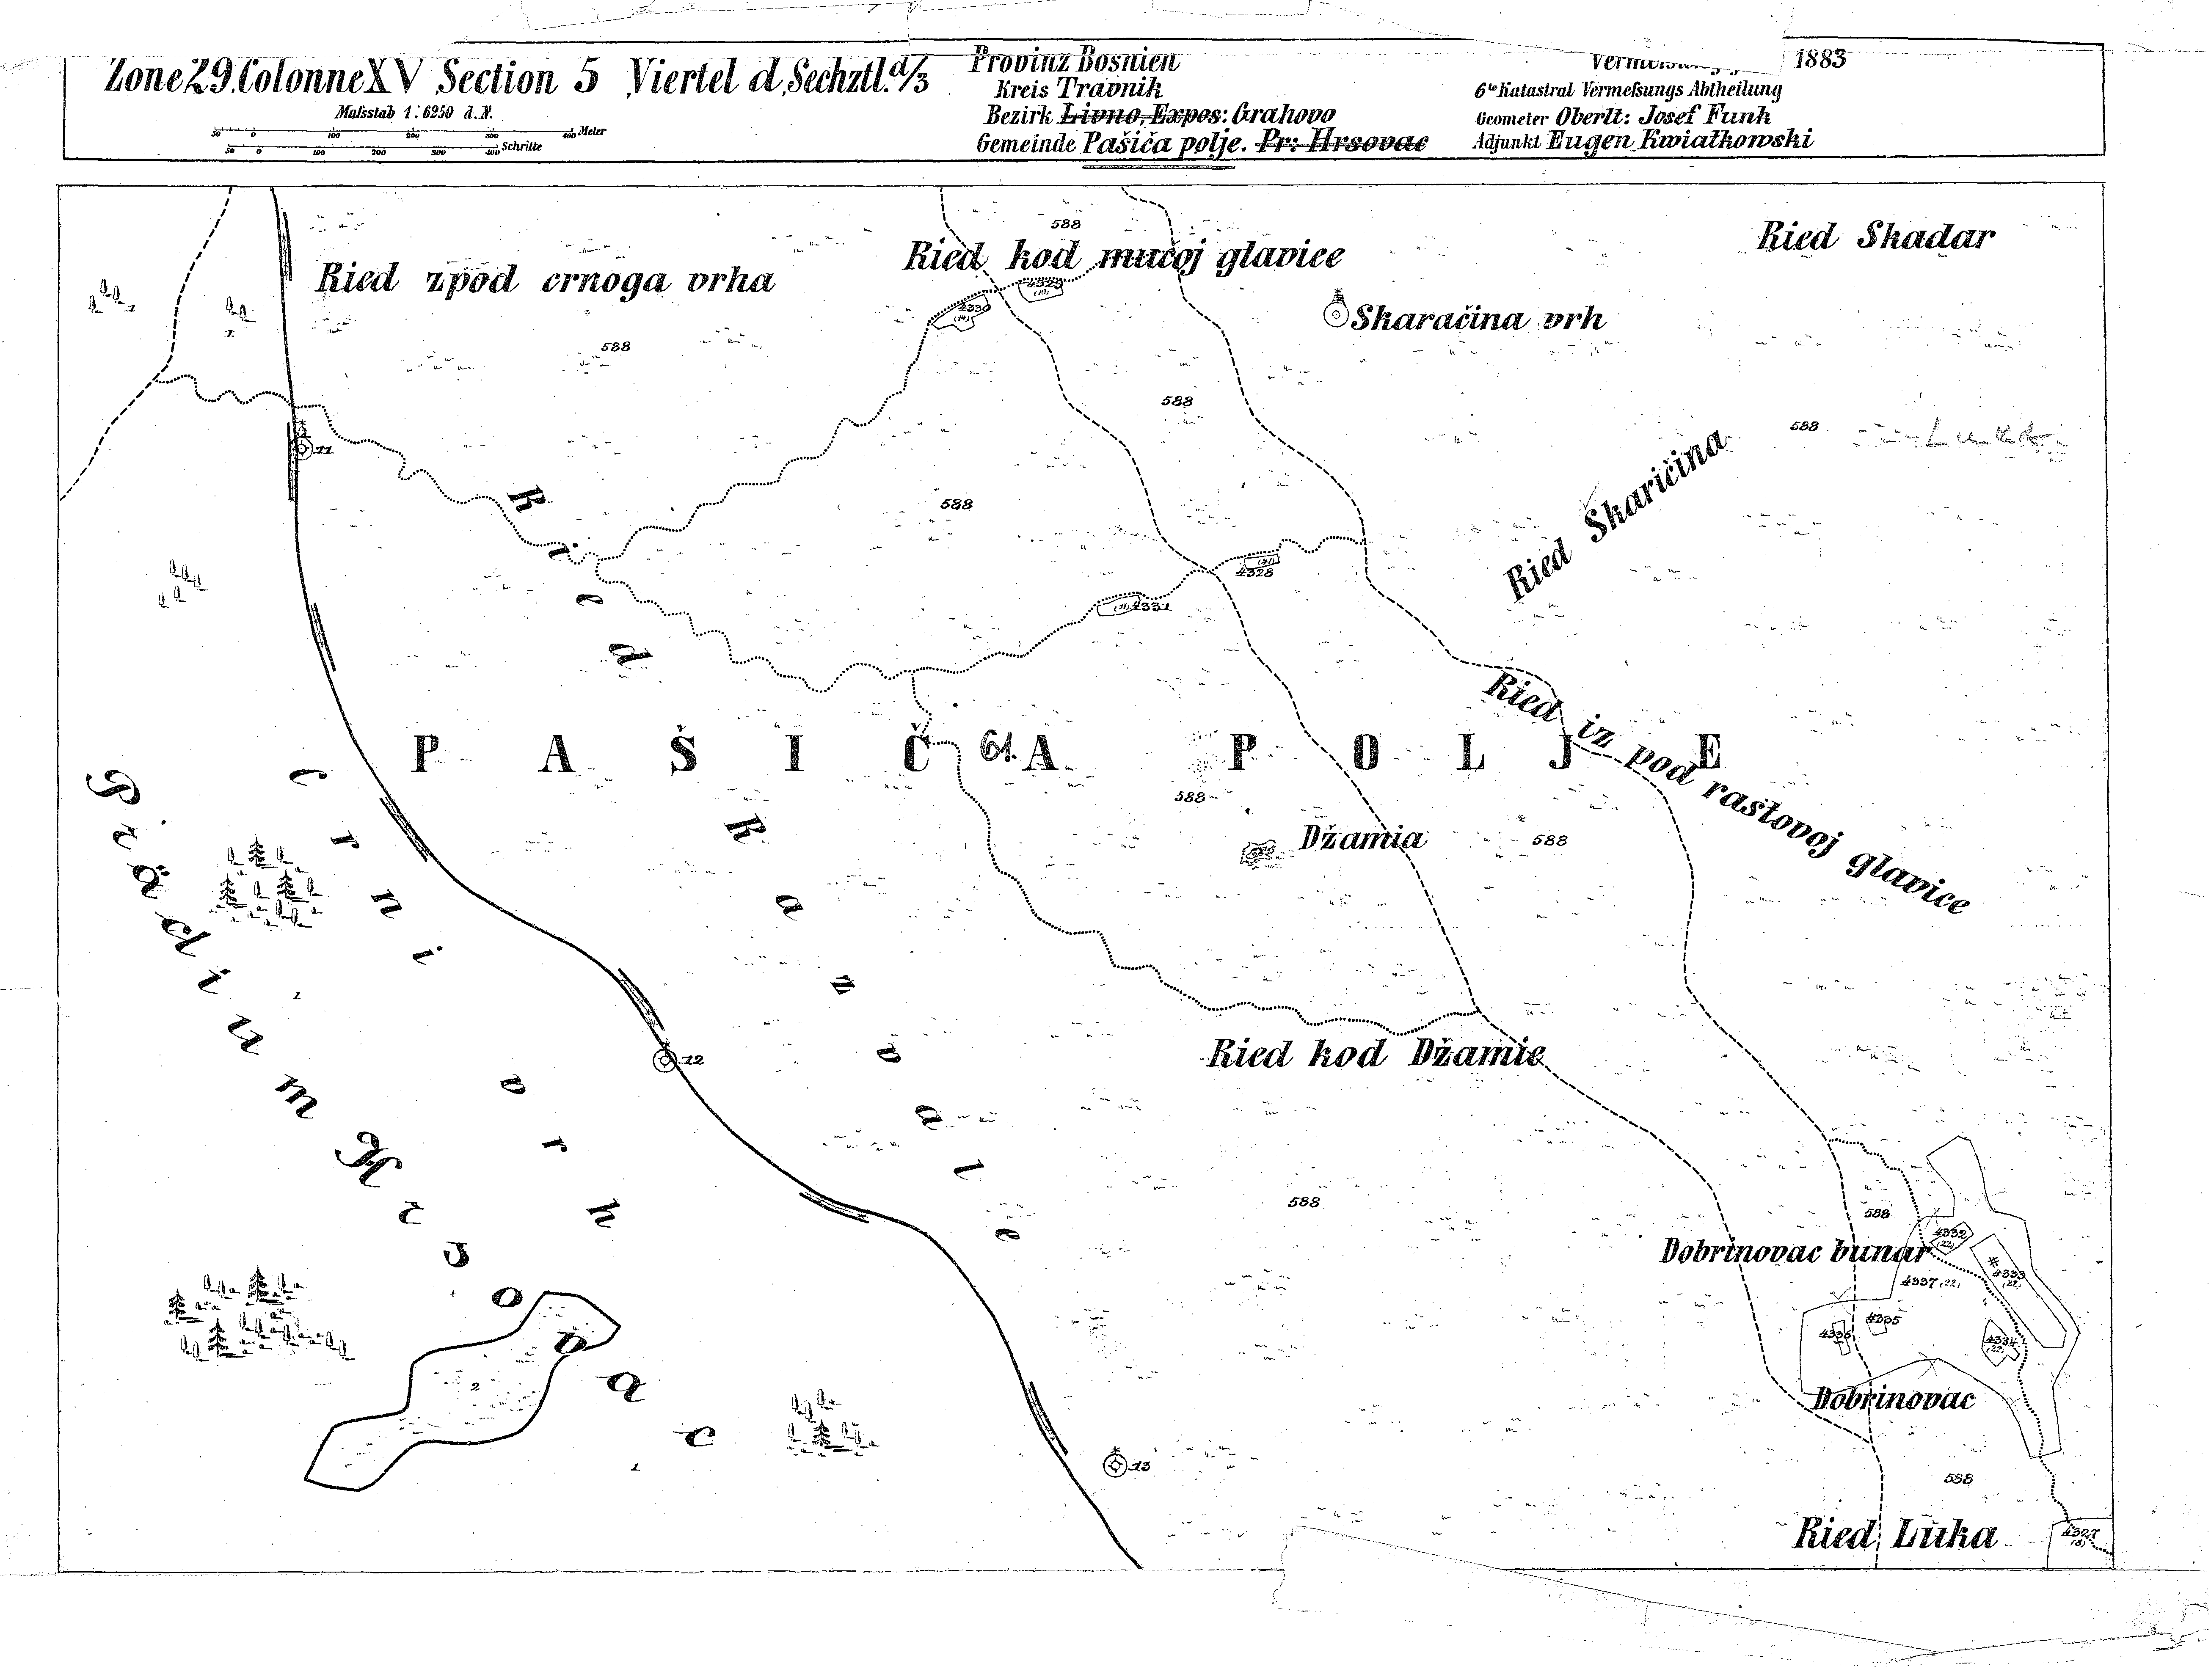 Zone 29. Colonne XV Section 5 Viertel d, Sechztl. d/3
Maſsstab 1:6250 d. N.
50 0 100 200 300 400 Meter
50 0 100 200 300 400 Schritte
Provinz Bosnien
Kreis Travnik
Bezirk Livno, Expos: Grahovo
Gemeinde Pašiča polje. Pr: Hrsovac
1883
6te Katastral Vermeſsungs Abtheilung
Geometer Oberlt: Josef Funk
Adjunkt Eugen Kwiatkowski
588
Ried Skadar
Ried kod mučoj glavice
Ried zpod crnoga vrha
4329
(10)
4330
(14)
1
1
Skaračina vrh
588
588
588
Luka
11
588
Ried Škaričina
4328
4331
Ried Razvale
Ried iz pod rastovoj glavice
PAŠIČA POLJE
61.
588
Džamia
588
Crni vrh
Prädium Hrsovac
1
12
Ried kod Džamie
588
588
4332
(22)
Dobrinovac bunar
4333
(22)
4337 (22)
4335
4336
4334
(22)
2
Dobrinovac
1
13
588
Ried Luka
4327